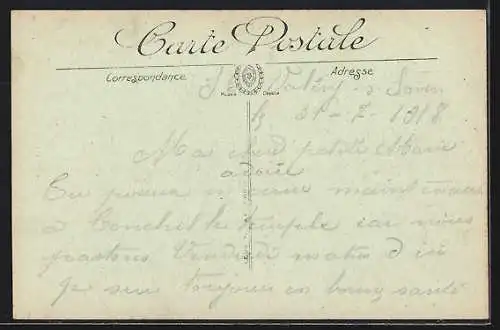 Carte Postale
Correspondance
Adresse
St Valéry s Somme
31-7-1918
Ma cher petite Marie
adorée
Tu pourra m maintenant
a Conchil le temple car nous
partons Vendredi matin d ici
Je suis toujours en bonne santé